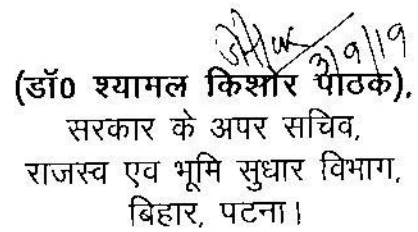 3/9/19
(डॉ0 श्यामल किशोर पाठक),
सरकार के अपर सचिव,
राजस्व एव भूमि सुधार विभाग,
बिहार, पटना।